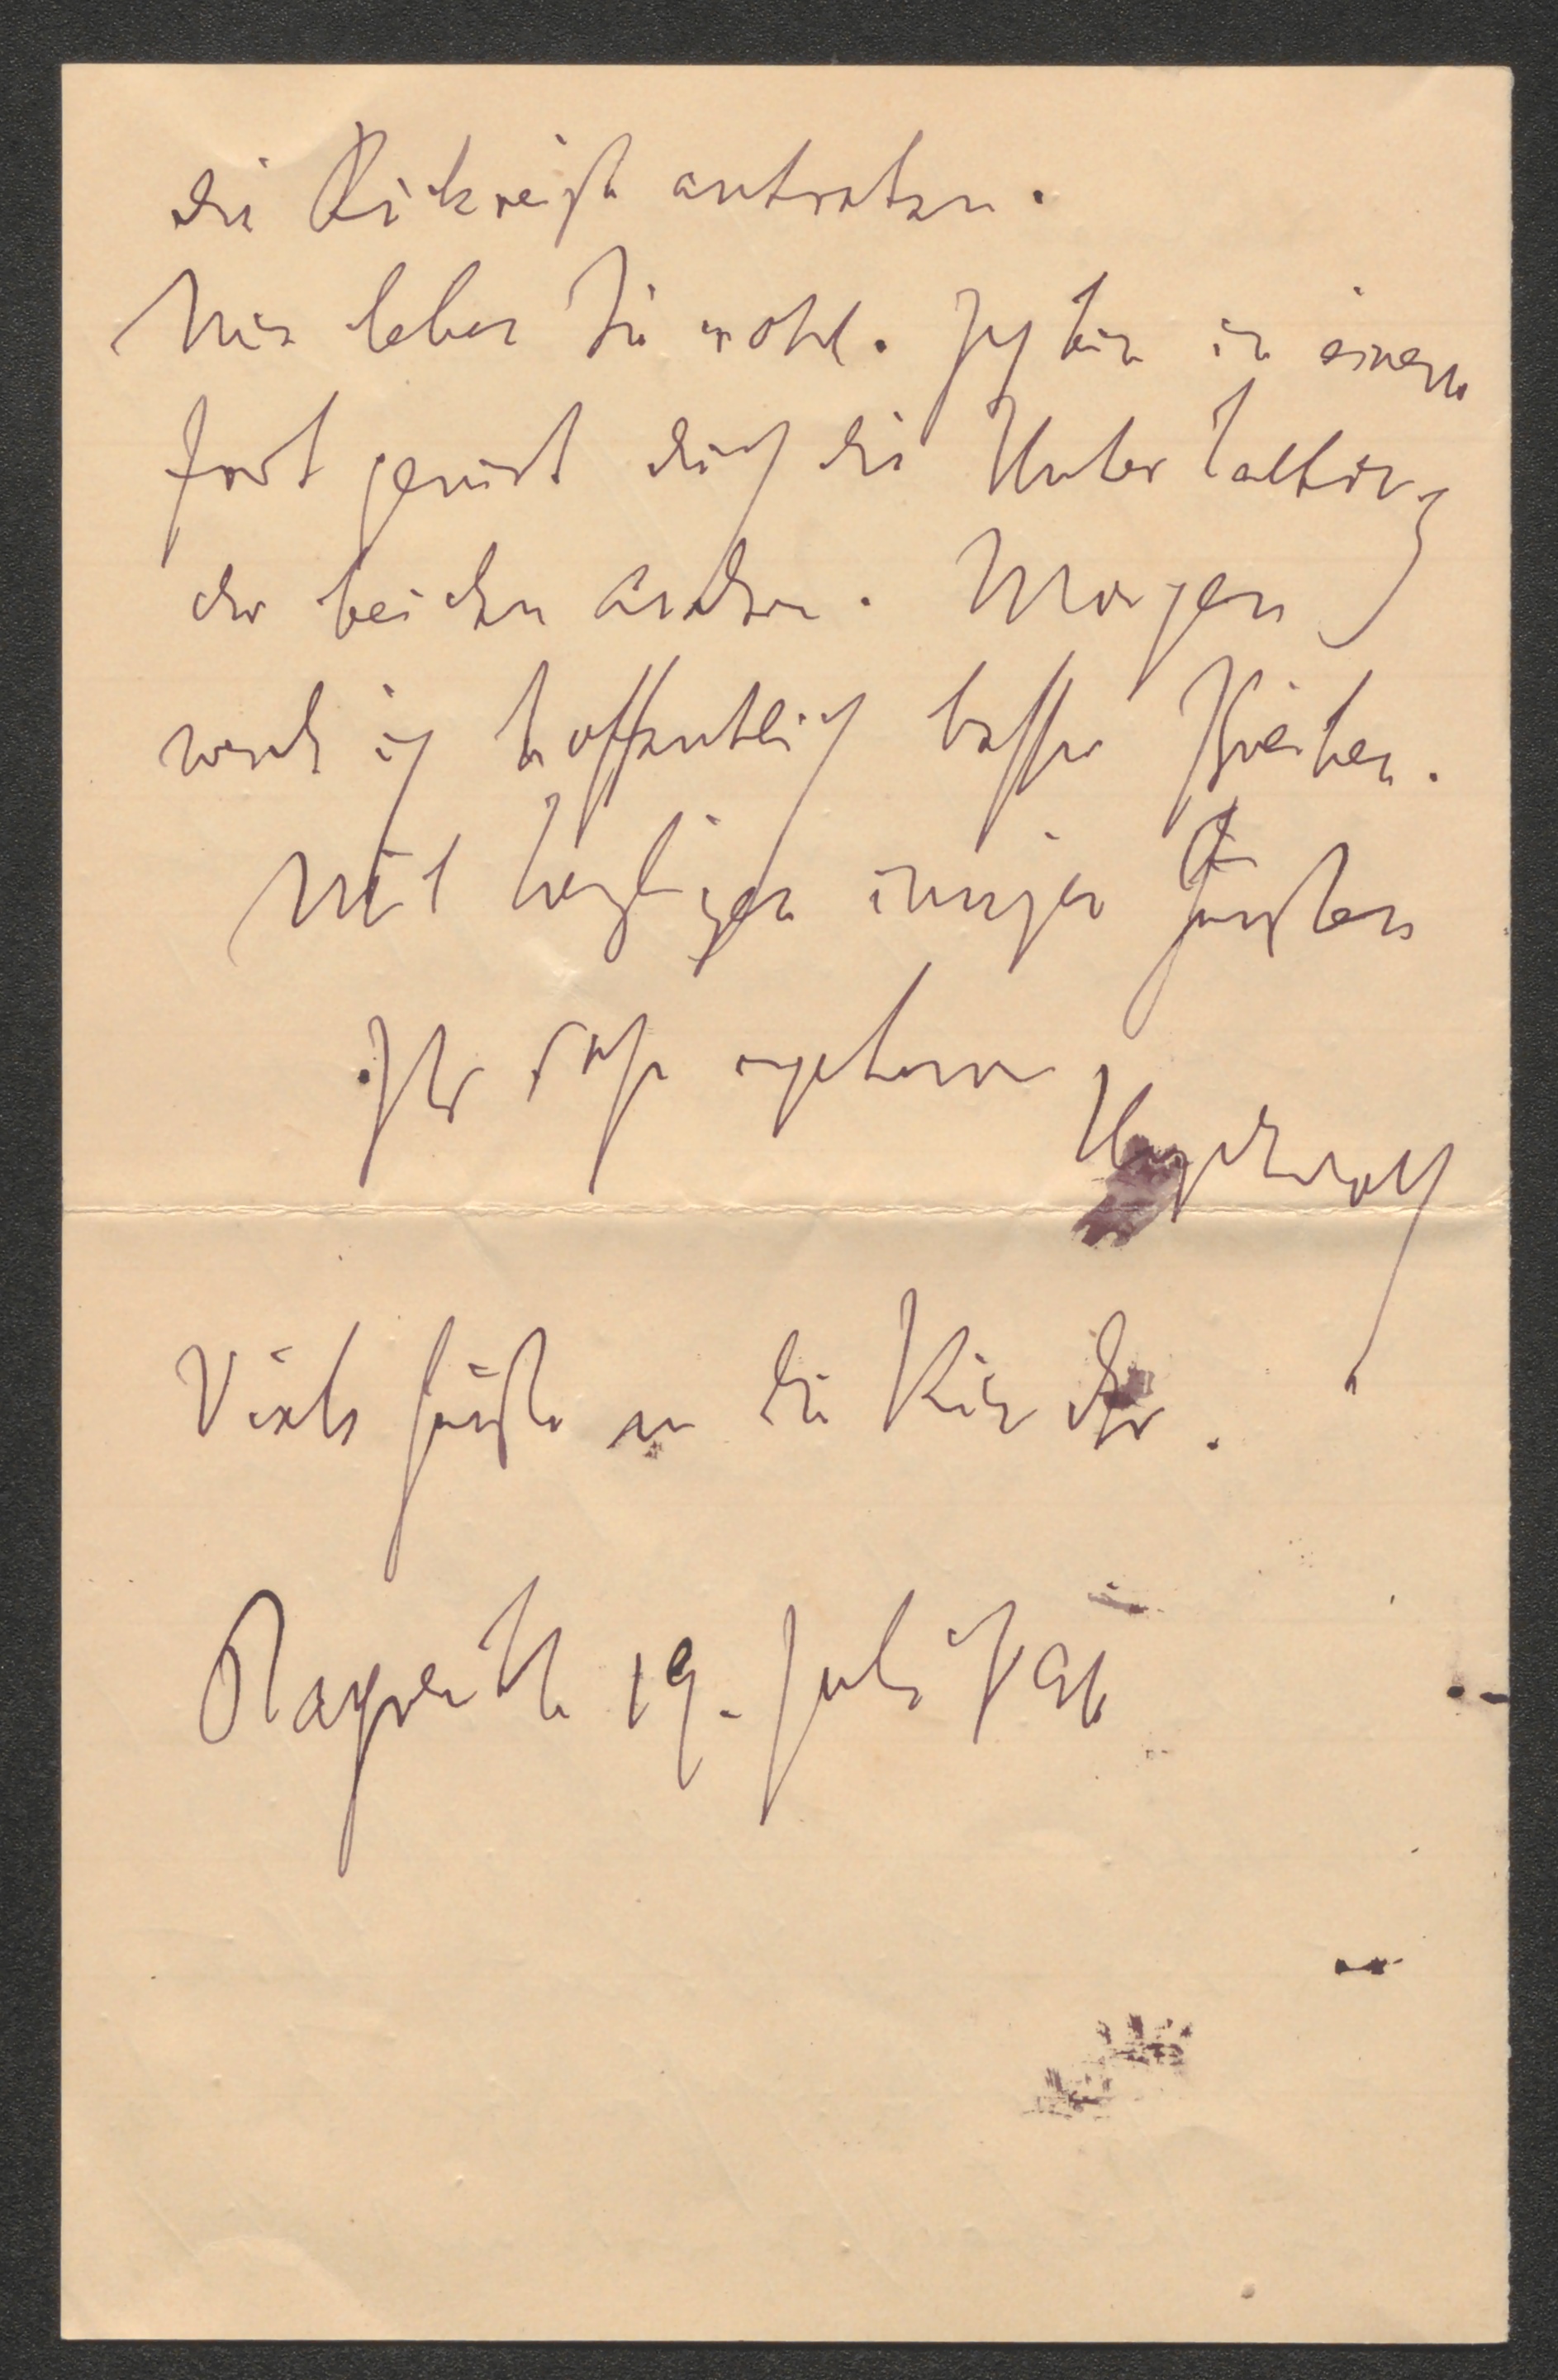 die Rückreise antreten.
Nun leben Sie wohl. Ich bin in einem
fort genirt durch die Unterhaltung
der beiden andren. Morgen
werde ich hoffentlich besser schreiben.
Mit herzlichen innigen Grüßen
Ihr sehr ergebener
Viele Grüße an die Kinder.
Bayreuth 19. Juli 1896